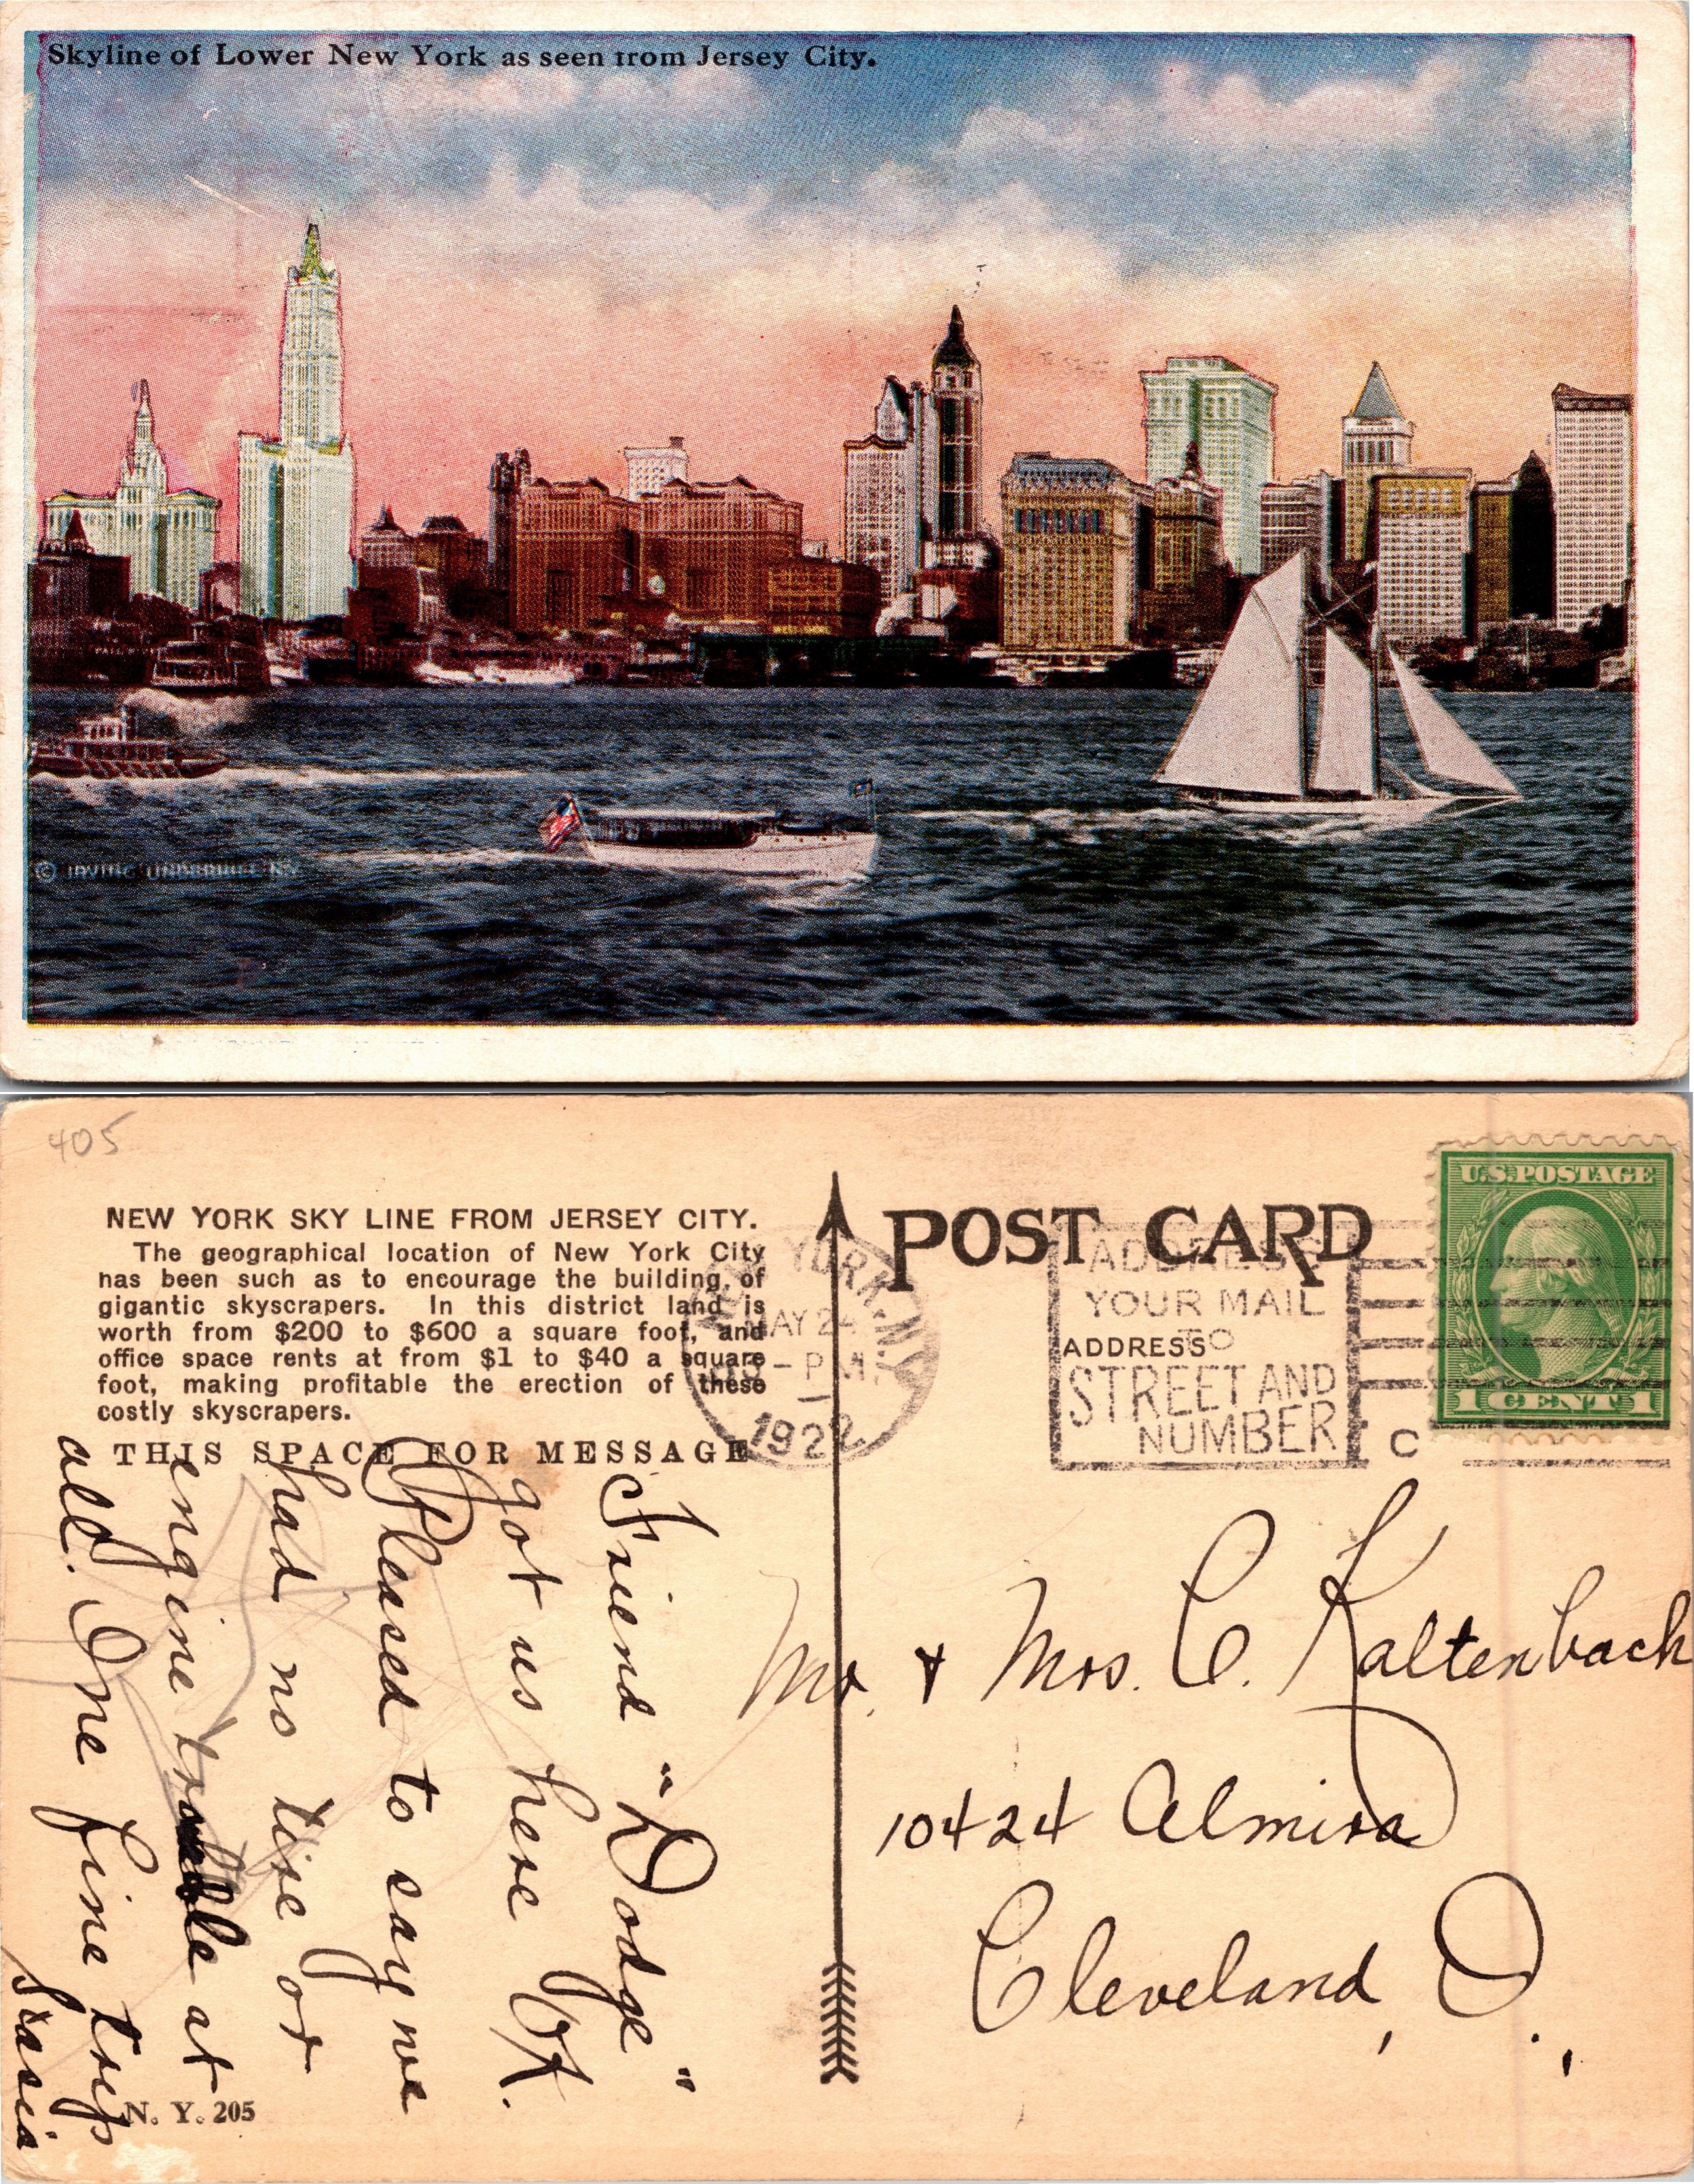 Skyline of Lower New York as seen from Jersey City.
© IRVING UNDERHILL N.Y.
405
NEW YORK SKY LINE FROM JERSEY CITY.
The geographical location of New York City
has been such as to encourage the building of
gigantic skyscrapers. In this district land is
worth from $200 to $600 a square foot, and
office space rents at from $1 to $40 a square
foot, making profitable the erection of these
costly skyscrapers.
THIS SPACE FOR MESSAGE
Friend "Dodge"
got us here OK.
Pleased to say we
had no tire or
engine trouble at
all. One fine trip
N. Y. 205
NEW YORK, N.Y.
MAY 24
- P M.
1922
POST CARD
ADDRESS
YOUR MAIL
TO
STREET AND
NUMBER
ADDRESS
C
U.S. POSTAGE
1 CENT 1
Mr. & Mrs. C. Kaltenbach
10424 Almira
Cleveland, O.,